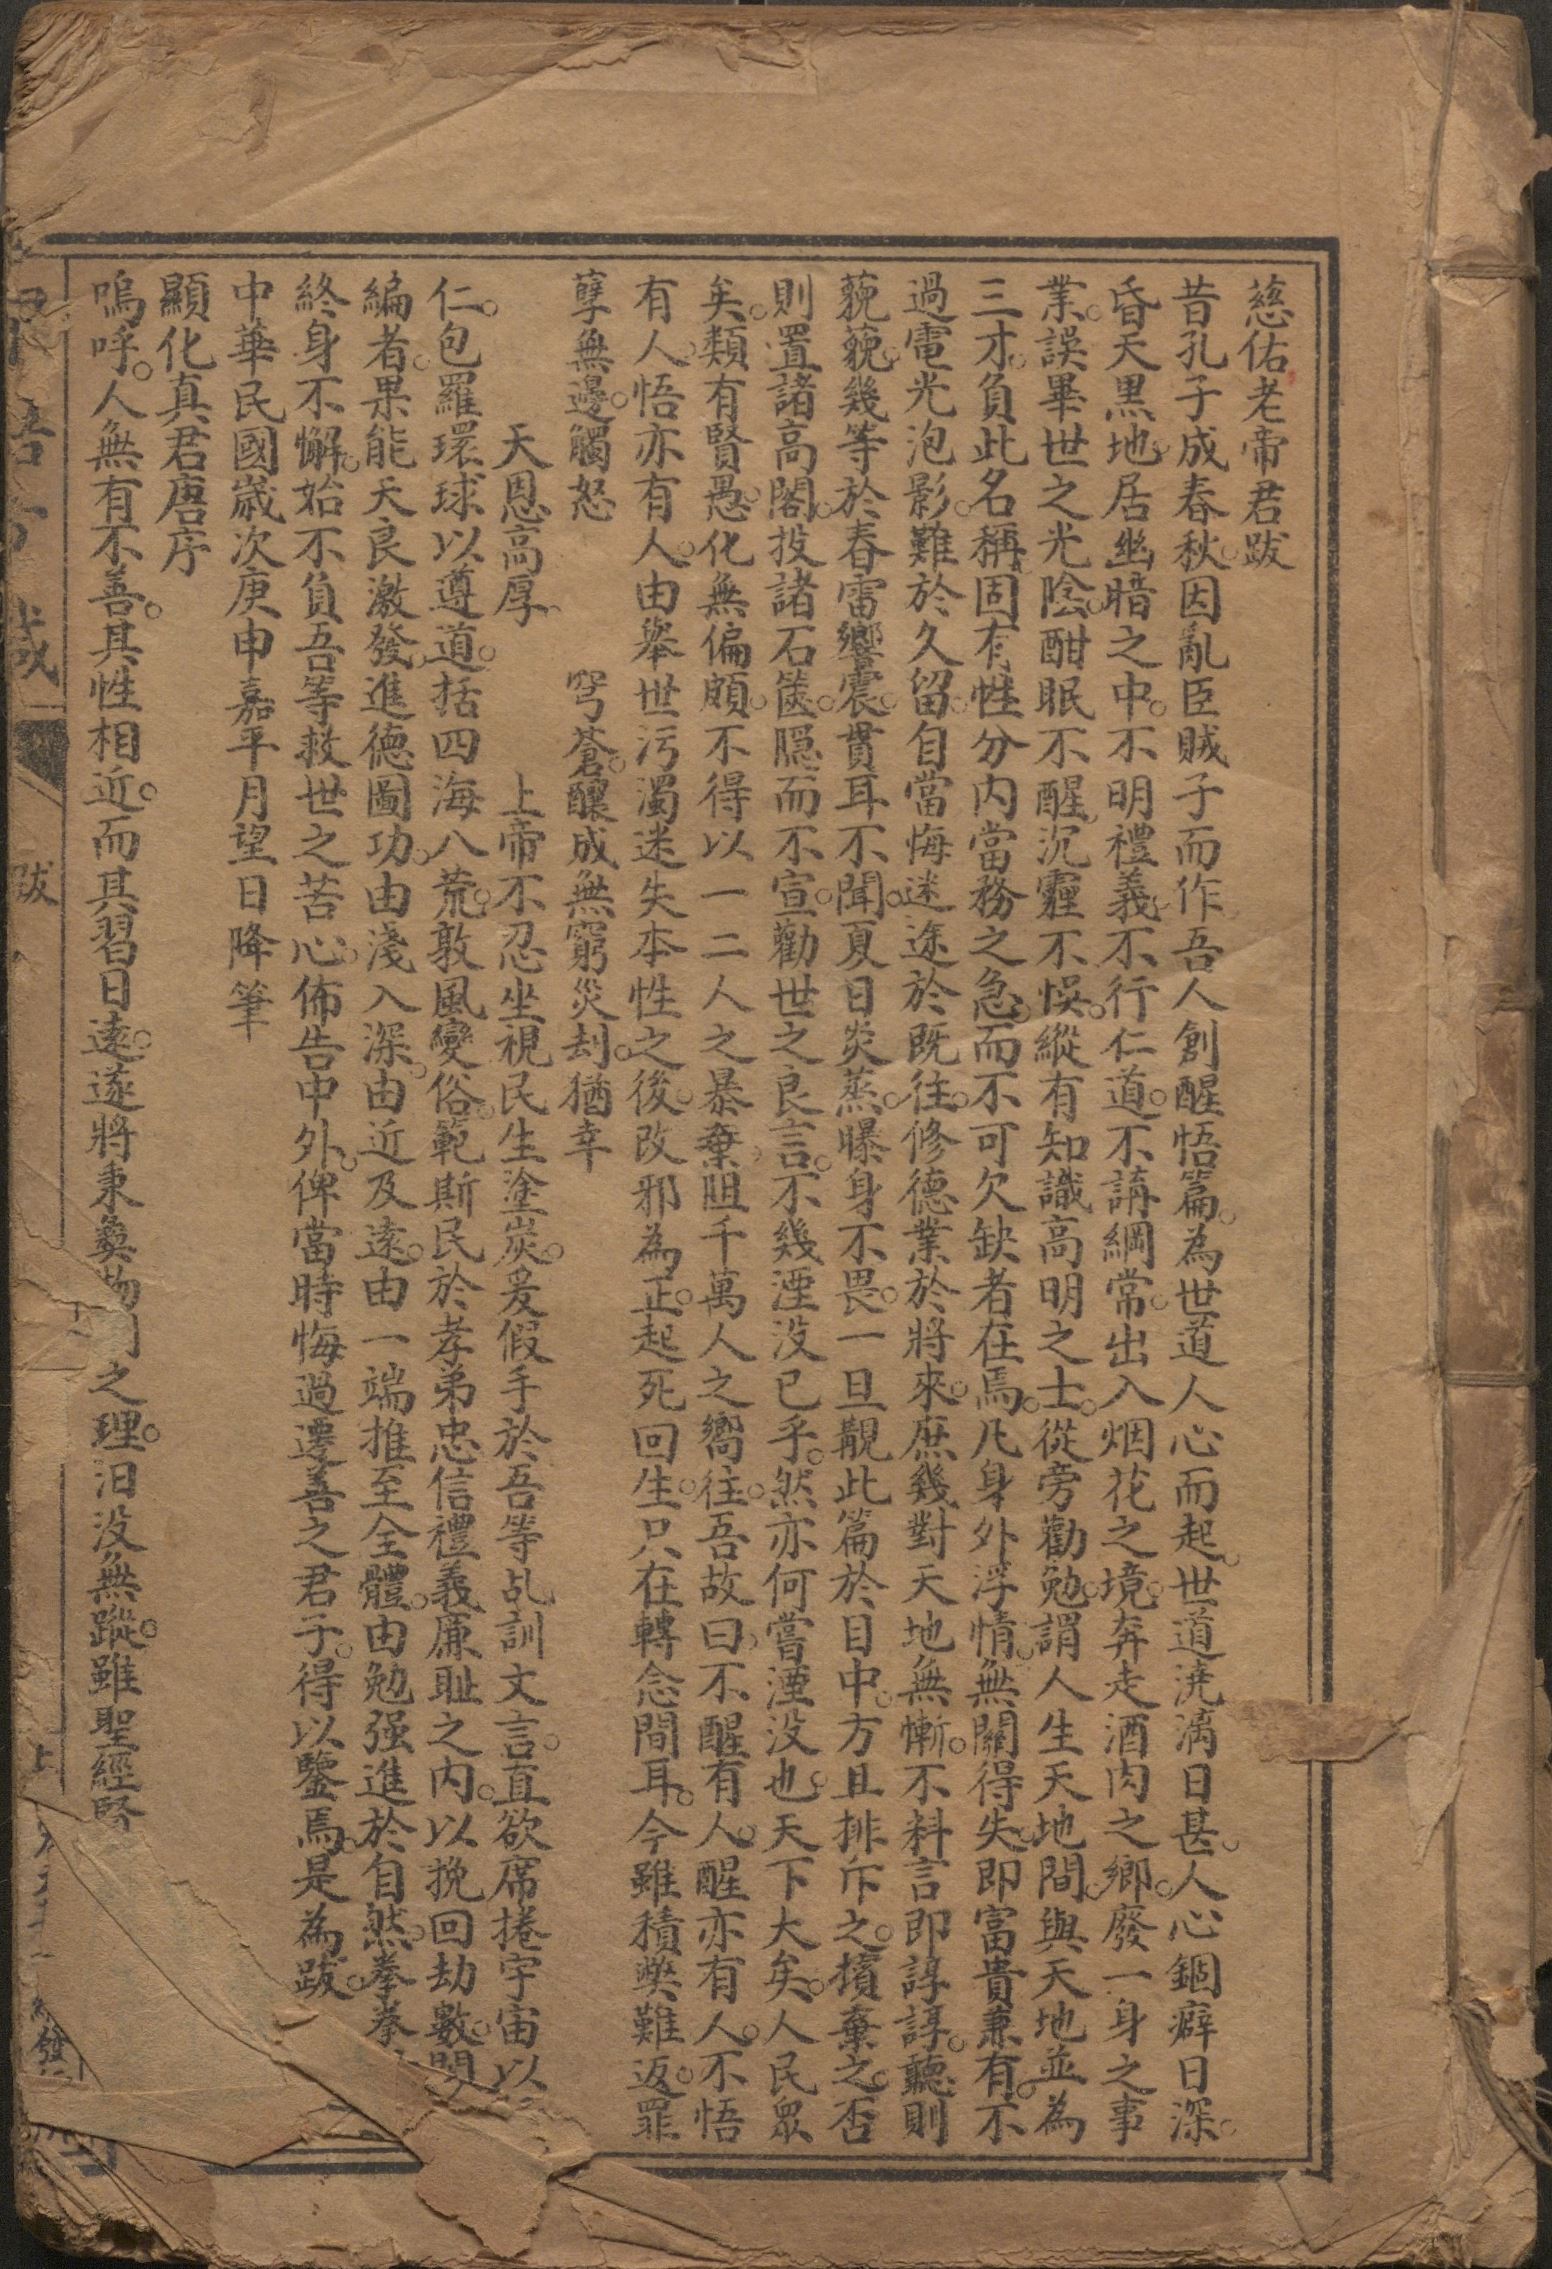 慈佑老帝君跋
昔孔子成春秋。因亂臣賊子而作。吾人創醒悟篇。為世道人心而起。世道澆漓日甚。人心錮癖日深。
昏天黑地。居幽暗之中。不明禮義。不行仁道。不講綱常。出入烟花之境。奔走酒肉之鄉。廢一身之事
業。誤畢世之光陰。酣眠不醒。沉霾不悞。縱有知識高明之士。從旁勸勉。謂人生天地間。與天地並為
三才。負此名稱。固有性分内當務之急。而不可欠缺者在焉。凡身外浮情。無關得失。即富貴兼有。不
過電光泡影。難於久留。自當悔迷途於既往。修德業於將來。庶幾對天地無慚。不料言即諄諄。聽則
藐藐。幾等於春雷響震。貫耳不聞。夏日炎蒸。曝身不畏。一旦覩此篇於目中。方且排斥之。擯棄之。否
則置諸高閣。投諸石篋。隱而不宣。勸世之良言。不幾湮没已乎。然亦何嘗湮没也。天下大矣。人民眾
矣。類有賢愚。化無偏頗。不得以一二人之暴棄。阻千萬人之嚮往。吾故曰。不醒有人。醒亦有人。不悟
有人。悟亦有人。由舉世污濁。迷失本性之後。改邪為正。起死回生。只在轉念間耳。今雖積獘難返。罪
孽無邊。觸怒　　穹蒼。釀成無窮災刦。猶幸
天恩高厚。　　上帝不忍坐視民生塗炭。爰假手於吾等乩訓文言。直欲席捲宇宙以
仁。包羅環球以遵道。括四海八荒。敦風變俗。範斯民於孝弟忠信禮義廉耻之内。以挽回劫數。閱
編者。果能天良激發。進德圖功。由淺入深。由近及遠。由一端推至全體。由勉强進於自然。拳拳
終身不懈。始不負吾等救世之苦心。佈告中外。俾當時悔過遷善之君子。得以鑒焉。是為跋。
中華民國歲次庚申嘉平月望日降筆
顯化真君唐序
嗚呼。人無有不善。其性相近。而其習日遠。遂將秉彝物則之理。汨没無蹤。雖聖經賢
跋